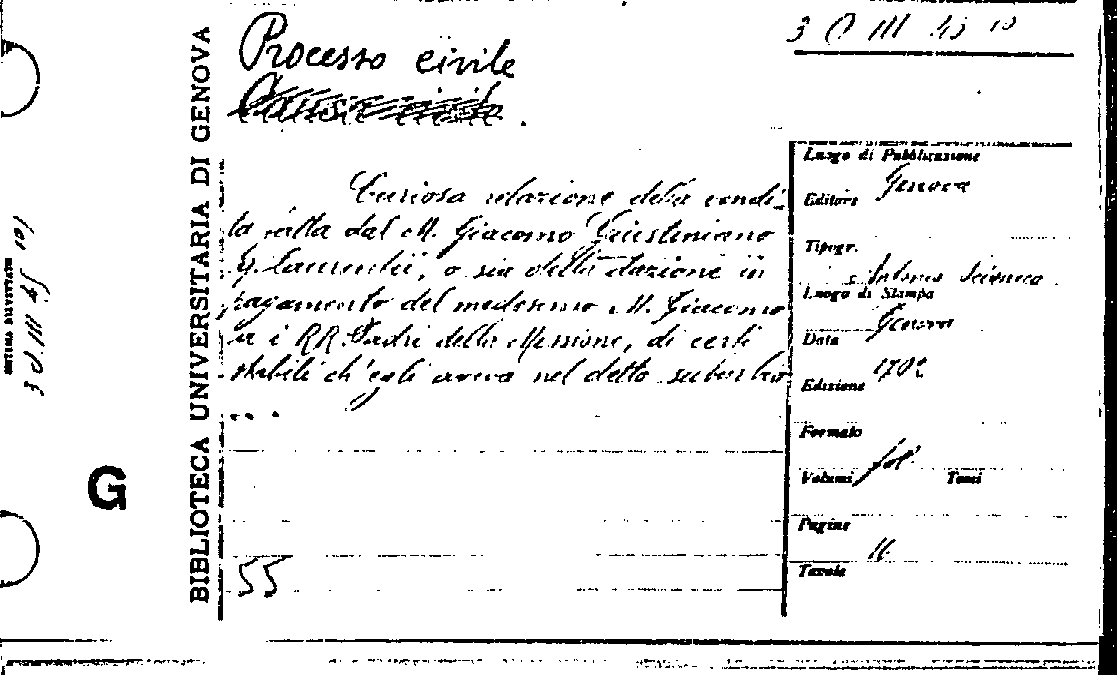 3 Q III 43 10
Processo civile
Causa civile.
Curiosa relazione della vendi-
ta fatta dal M. Giacomo Giustiniano
q. Laurentii, o sia della dazione in
pagamento del medesimo M. Giacomo
a i RR. Padri della Missione, di certi
stabili ch'egli aveva nel detto suburbio
...
55
BIBLIOTECA UNIVERSITARIA DI GENOVA
G
Luogo di Pubblicazione
Genova
Editore
Tipogr.
Antonio
Luogo di Stampa
Genova
Data
Edizione
Formato
fol.
Volumi Tomi
Pagine
Tavole